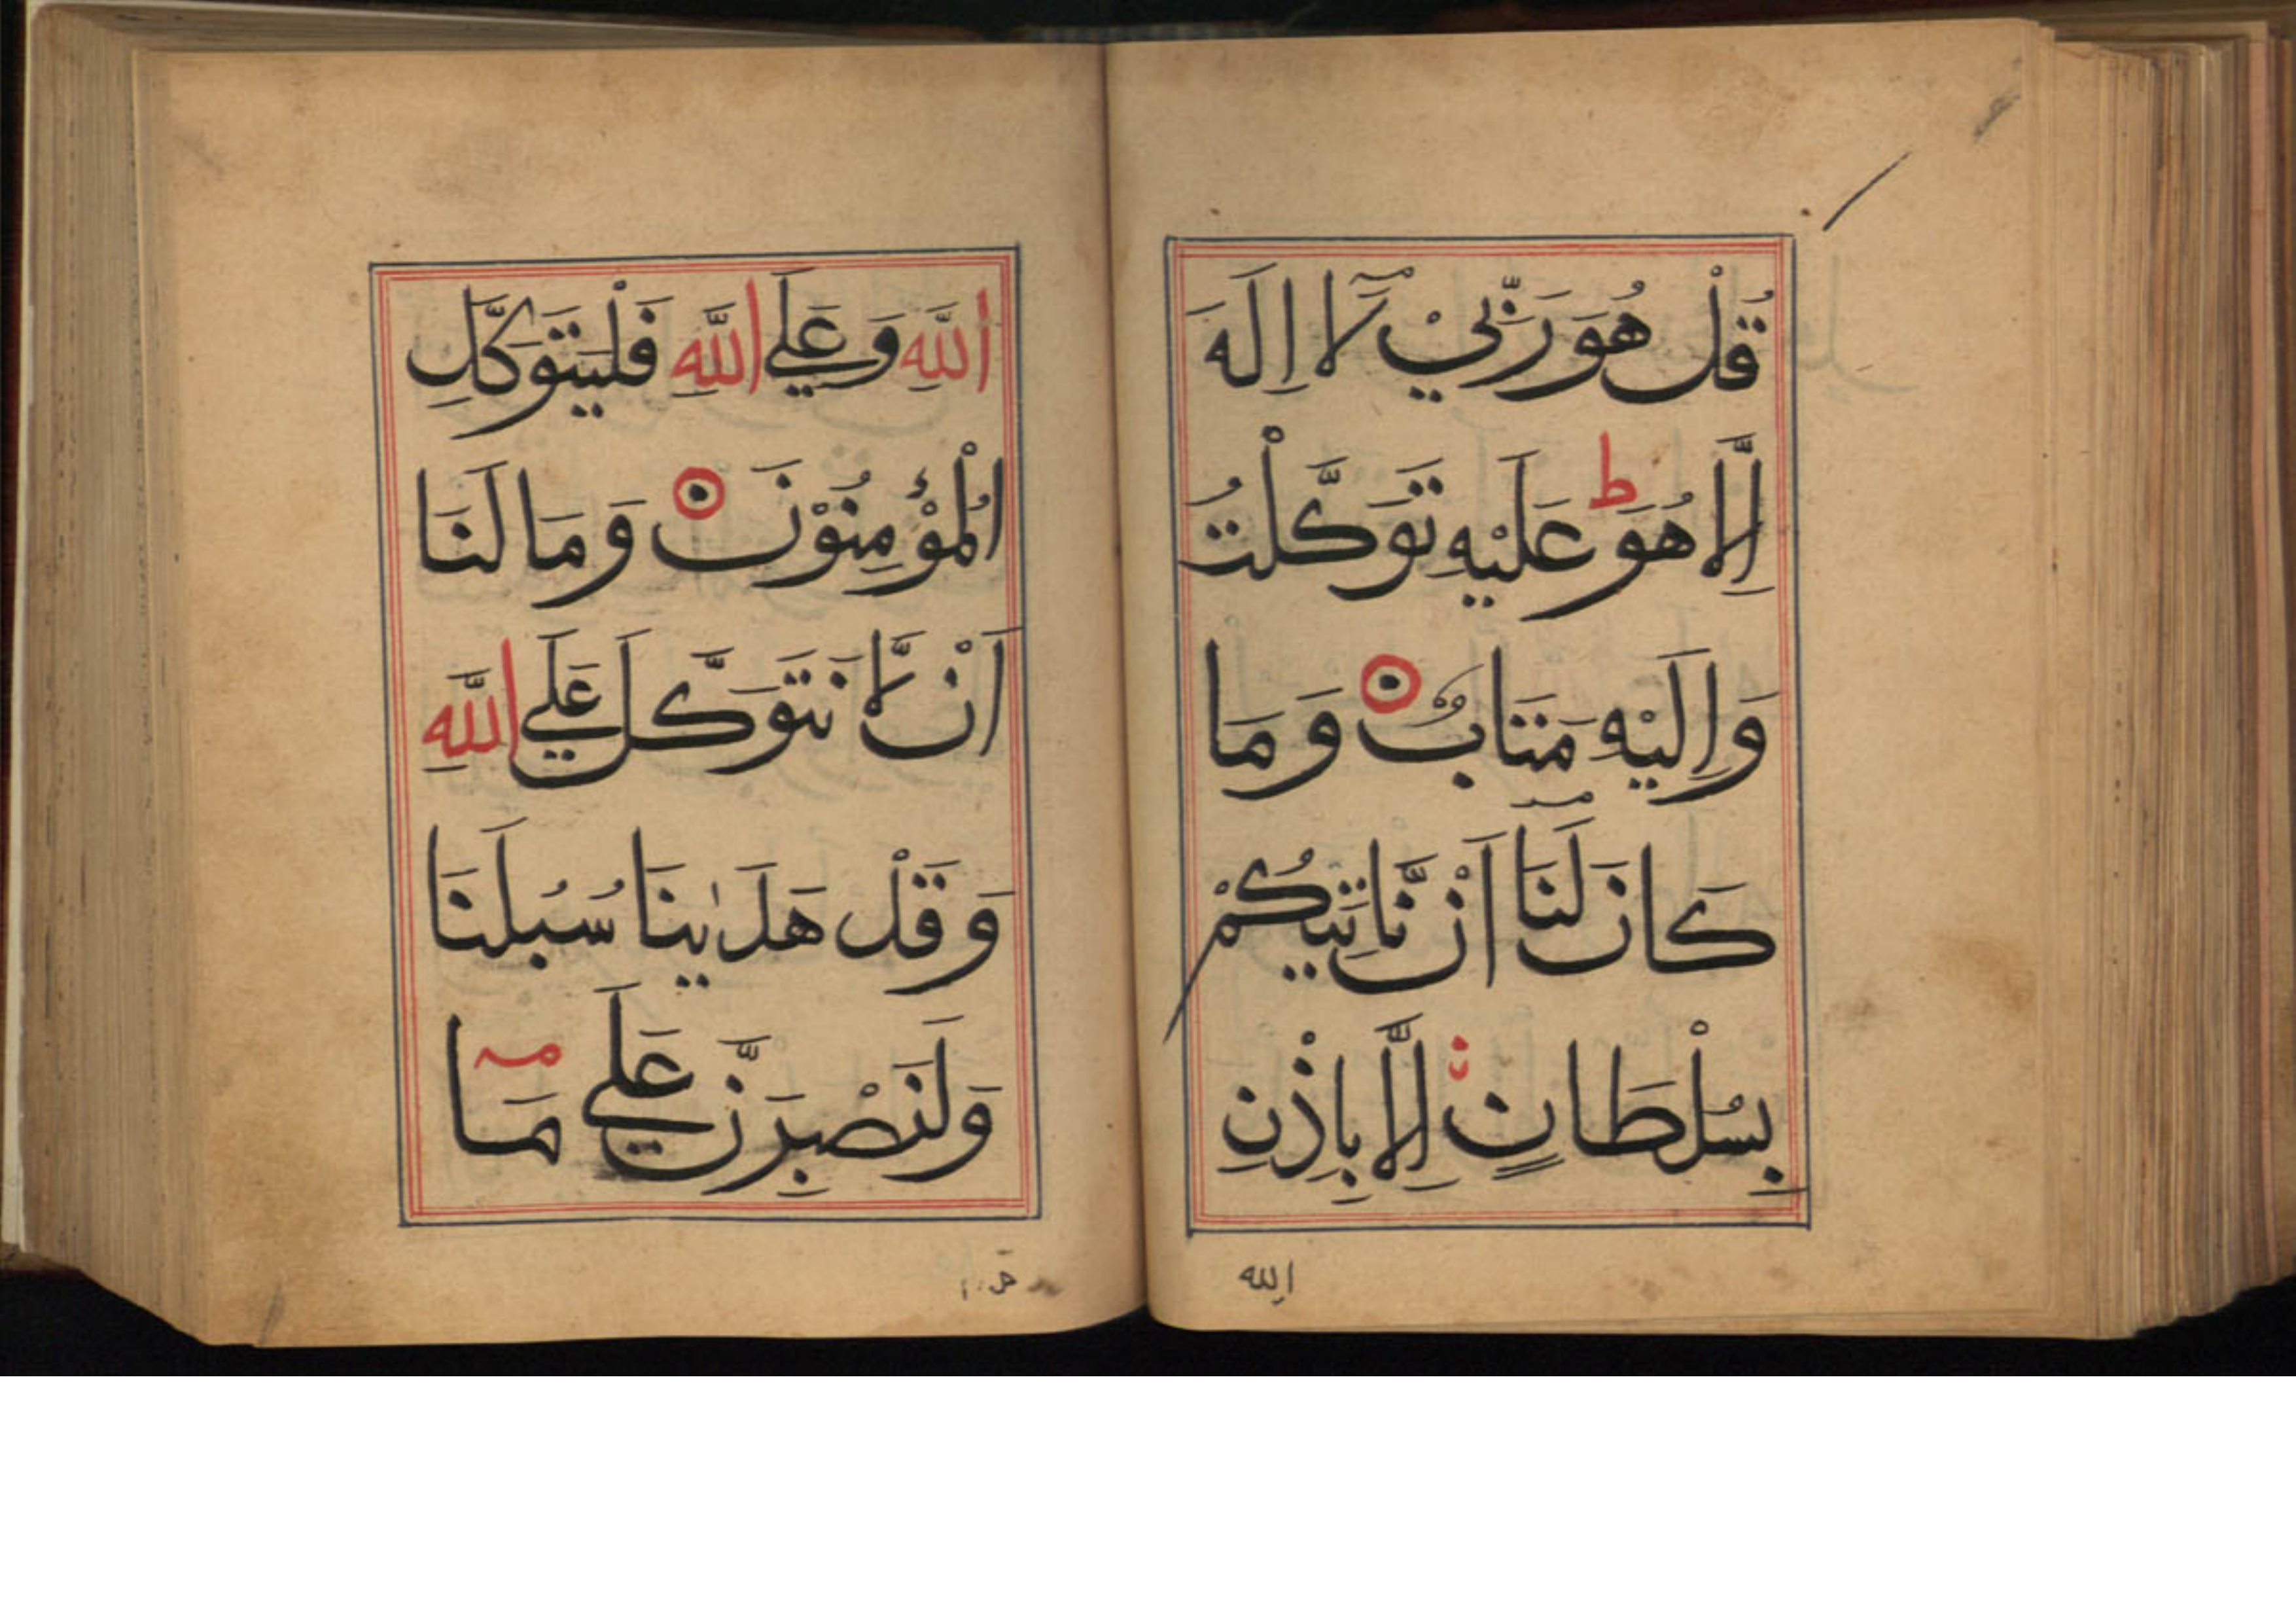 قُلْ هُوَ رَبِّيْ لَآ اِلٰهَ
اِلَّا هُوَ ط عَلَيْهِ تَوَكَّلْتُ
وَاِلَيْهِ مَتَابٌ ۝ وَمَا
كَانَ لَنَآ اَنْ نَّاتِيَكُمْ
بِسُلْطَانٍ اِلَّا بِاِذْنِ
الله
اللّٰهِ وَعَلَي اللّٰهِ فَلْيَتَوَكَّلِ
الْمُؤْمِنُوْنَ ۝ وَمَا لَنَا
اَنْ لَّا نَتَوَكَّلَ عَلَي اللّٰهِ
وَقَدْ هَدٰىنَا سُبُلَنَا
وَلَنَصْبِرَنَّ عَلَي مَآ